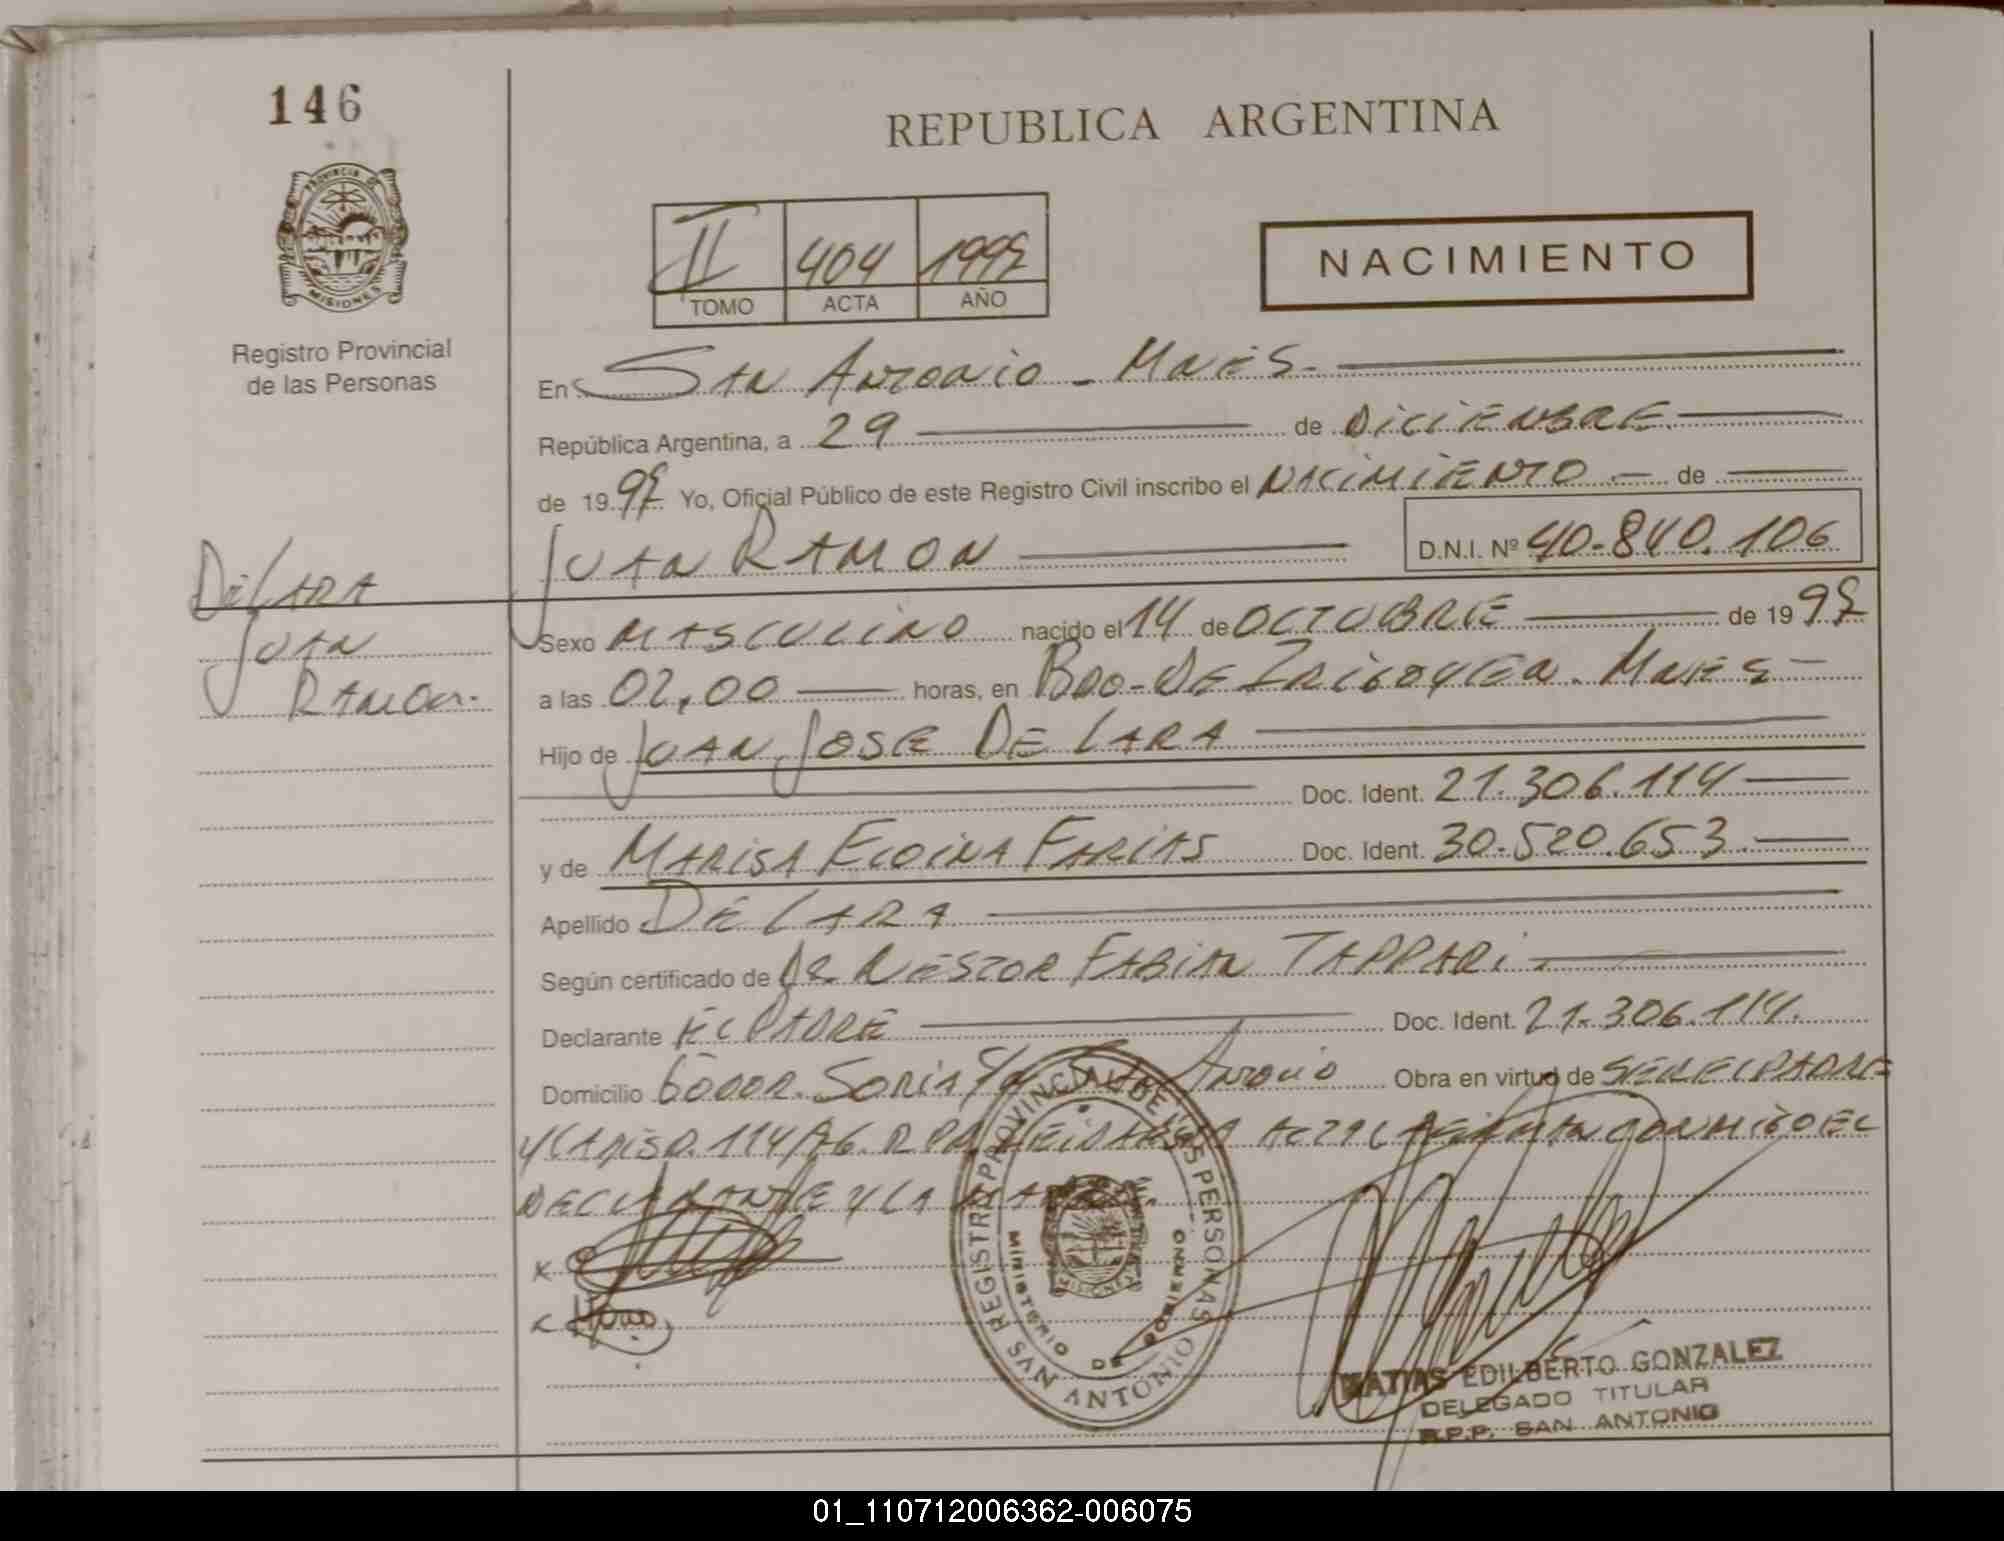 146
REPUBLICA ARGENTINA
PROVINCIA DE
MISIONES
Registro Provincial
de las Personas
II 404 1997
TOMO ACTA AÑO
NACIMIENTO
En SAN ANTONIO - MNES.
República Argentina, a 29 de DICIEMBRE
de 1997 Yo, Oficial Público de este Registro Civil inscribo el NACIMIENTO de
JUAN RAMON D.N.I. Nº 40.840.106
DE LARA
JUAN
RAMON.
Sexo MASCULINO nacido el 14 de OCTUBRE de 1997
a las 02,00 horas, en BDO. DE IRIGOYEN. MNES
Hijo de JUAN JOSE DE LARA
Doc. Ident. 21.306.114
y de MARISA ELOINA FARIAS Doc. Ident. 30.520.653.
Apellido DE LARA
Según certificado de DR NESTOR FABIAN TAPPARI.
Declarante EL PADRE Doc. Ident. 21.306.114.
Domicilio SAN ANTONIO Obra en virtud de SER EL PADRE
Y LA DISP. 114/96. R.P.P. LEIDA ACTA LA FIRMAN CONMIGO EL
DECLARANTE Y LA MADRE.
REGISTRO PROVINCIAL DE LAS PERSONAS
MINISTERIO DE GOBIERNO
MISIONES
SAN ANTONIO
MATIAS EDILBERTO GONZALEZ
DELEGADO TITULAR
R.P.P. SAN ANTONIO
01_110712006362-006075